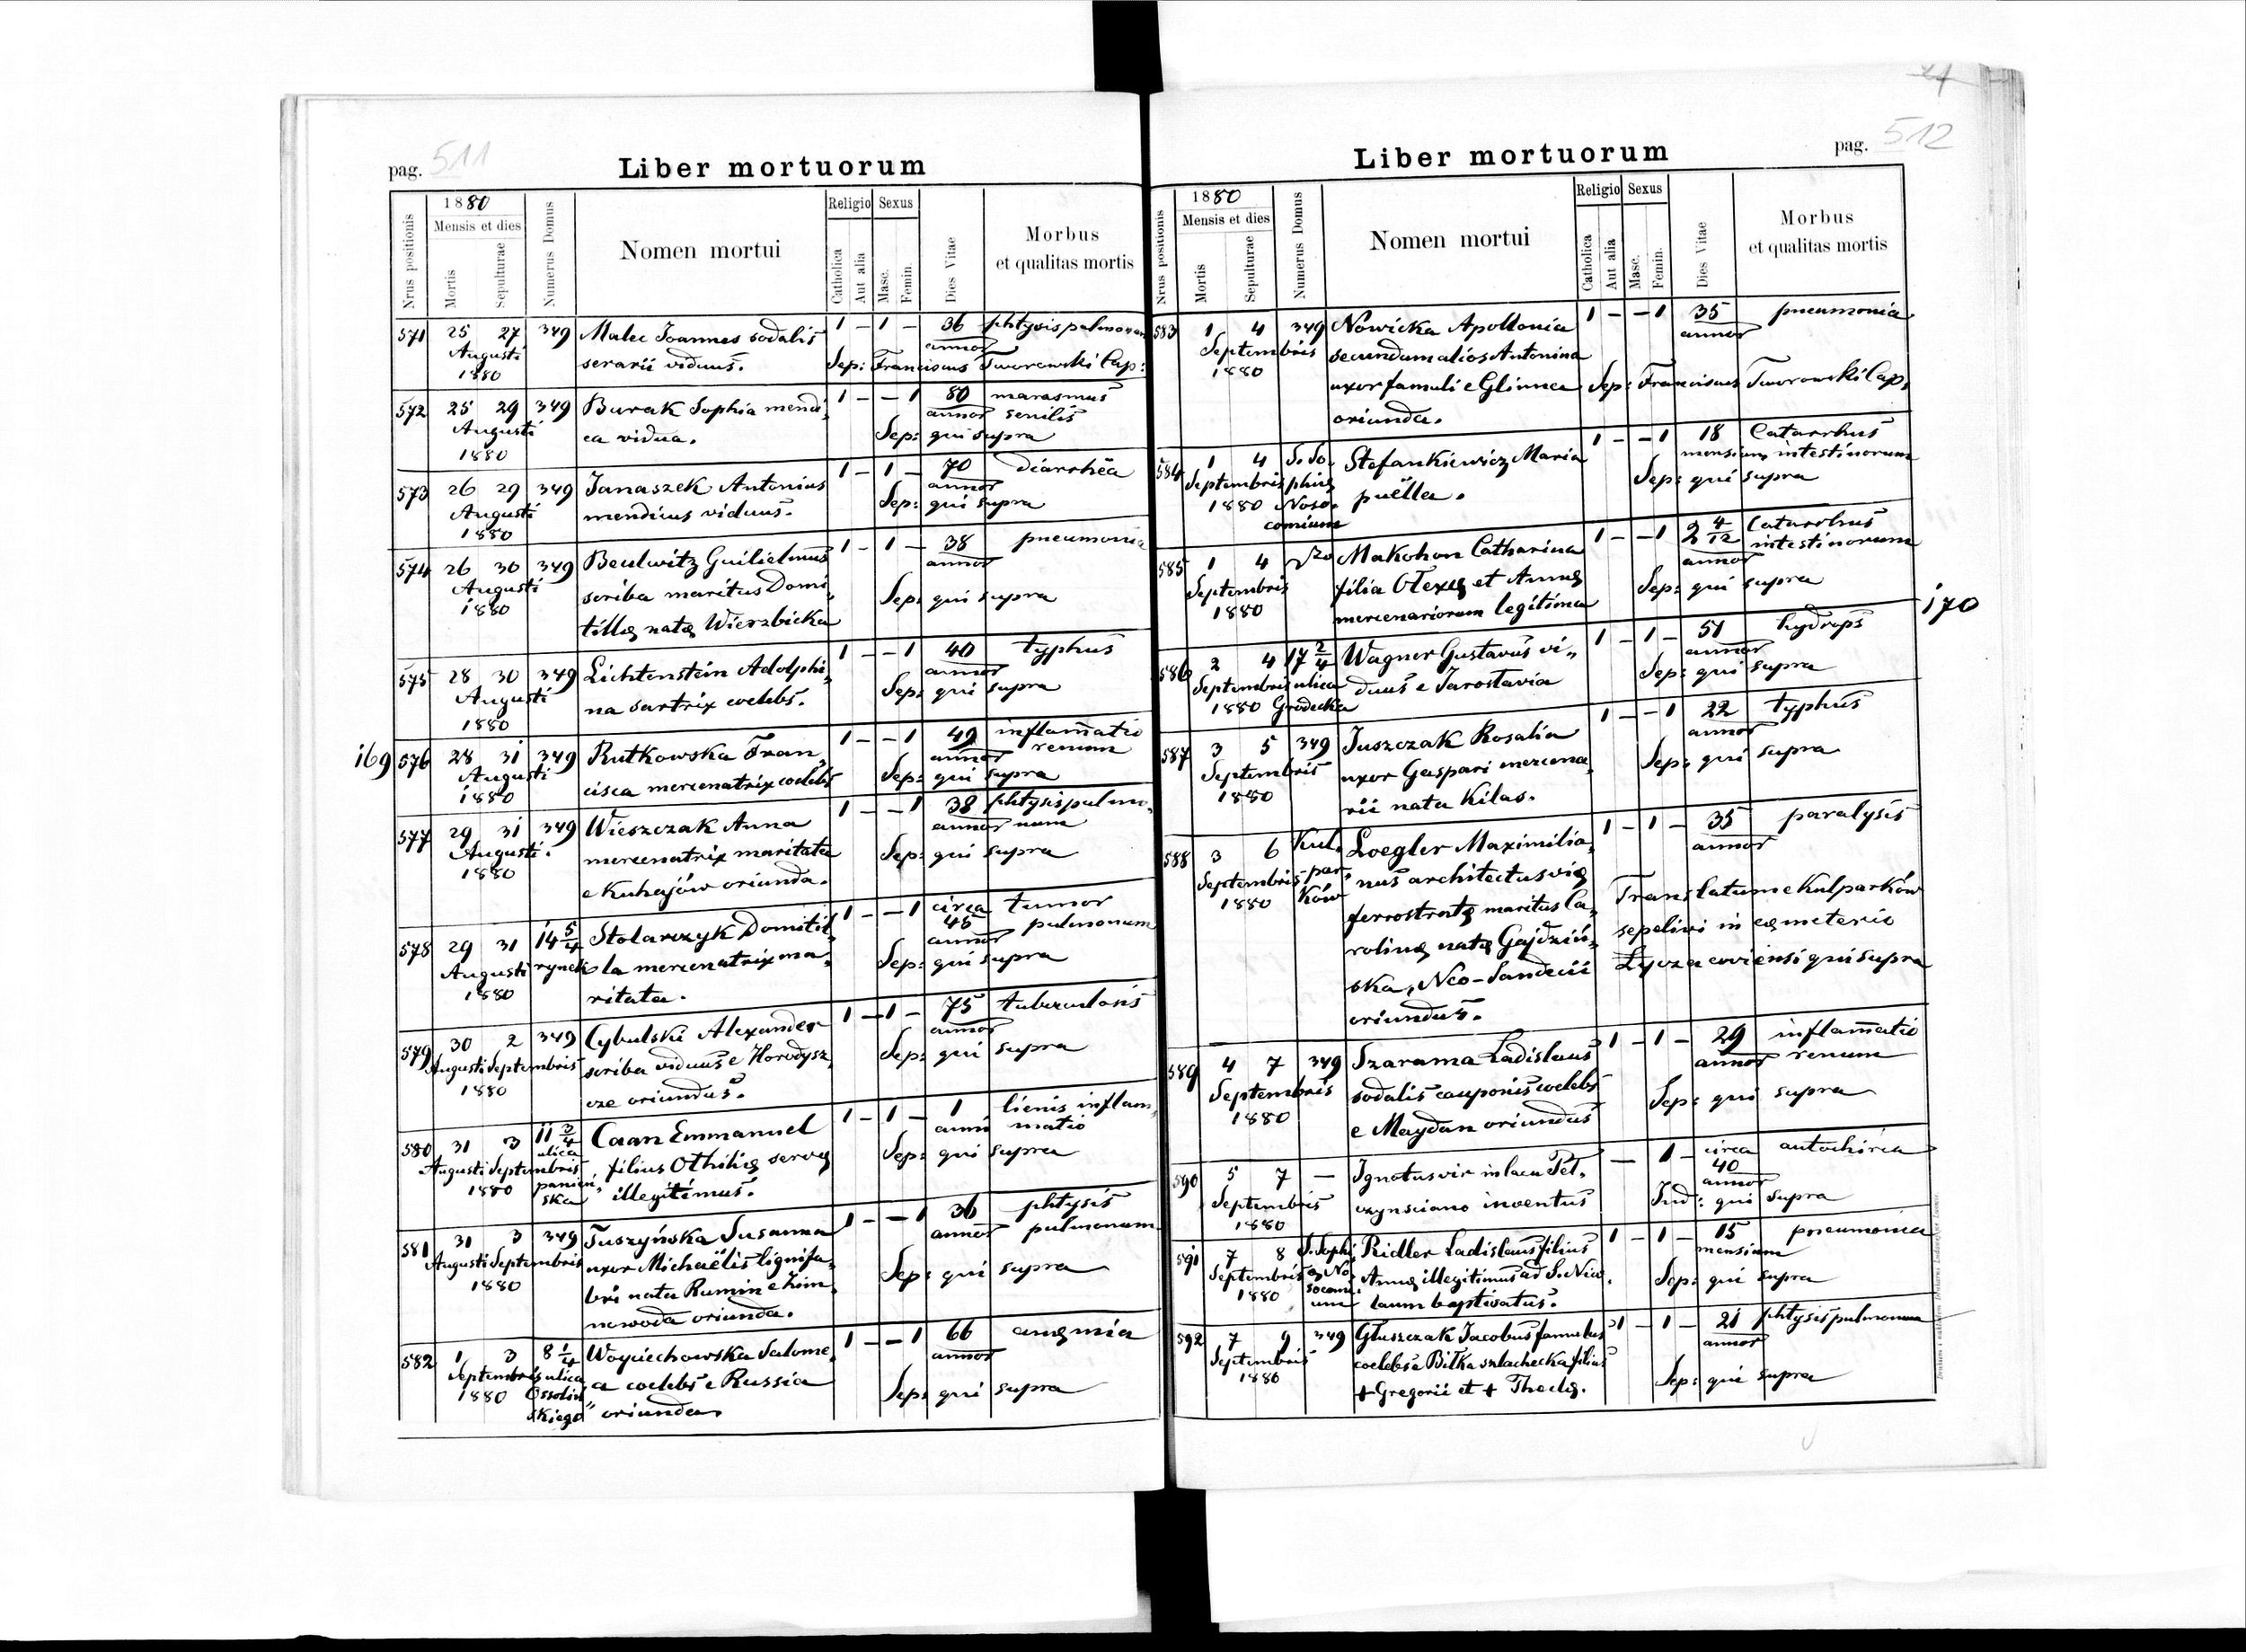 pag. 511 Liber mortuorum
1880
Nrus positionis Mensis et dies Mortis Sepulturae Numerus Domus Nomen mortui Religio Catholica Aut alia Sexus Masc. Femin. Dies Vitae Morbus et qualitas mortis
571 25 27 349 Malec Joannes sodalis 1 – 1 – 36 phtysis pulmonum
Augusti annor
1880 serarii viduus. Sep: Franciscus Tworowski Cap:
572 25 29 349 Burak Sophia mendi 1 – – 1 80 marasmus
Augusti annor senilis
1880 ca vidua. Sep: qui supra
573 26 29 349 Janaszek Antonius 1 – 1 – 70 diarrhëa
Augusti annor
1880 mendicus viduus. Sep: qui supra
574 26 30 349 Beulwitz Guilielmus 1 – 1 – 38 pneumonia
Augusti scriba maritus Domi, annor
1880 tillę natę Wierzbicka Sep: qui supra
575 28 30 349 Lichtenstein Adolphi, 1 – – 1 40 typhus
Augusti annor
1880 na sartrix coelebs. Sep: qui supra
169 576 28 31 349 Rutkowska Fran, 1 – – 1 49 inflam̄atio
Augusti annor renum
1880 cisca mercenatrix coelebs Sep: qui supra
577 29 31 349 Wieszczak Anna 1 – – 1 38 phtysis pulmo,
Augusti. mercenatrix maritata annor num
1880 e Kuhajów oriunda. Sep: qui supra
578 29 31 14 5/4 Stolarczyk Domitil, 1 – – 1 circa tumor
Augusti rynek la mercenatrix ma, 45 annor pulmonum
1880 ritata. Sep: qui supra
579 30 2 349 Cybulski Alexander 1 – 1 – 75 tuberculosis
Augusti Septembris scriba viduus e Horodysz, annor
1880 cze oriundus. Sep: qui supra
580 31 3 11 3/4 Caan Emmanuel 1 – 1 – 1 lienis inflam,
Augusti Septembris ulica filius Othilię servę anni matio
1880 panień, ska illegitimus. Sep: qui supra
581 31 3 349 Tuszyńska Susanna 1 – – 1 36 phtysis
Augusti Septembris uxor Michaëlis lignifa, annor pulmonum
1880 bri nata Rumin e Zim, Sep: qui supra
nawoda oriunda.
582 1 3 8 1/4 Woyciechowska Salome, 1 – – 1 66 anęmia
Septembris ulica a coelebs e Russia annor
1880 Ossoliń skiego oriunda. Sep: qui supra
Liber mortuorum pag. 512
1880
Nrus positionis Mensis et dies Mortis Sepulturae Numerus Domus Nomen mortui Religio Catholica Aut alia Sexus Masc. Femin. Dies Vitae Morbus et qualitas mortis
583 1 4 349 Nowicka Apollonia 1 – – 1 35 pneumonia
Septembris secundum alios Antonina annor
1880 uxor famuli e Glinna Sep: Franciscus Tworowski Cap,
oriunda.
584 1 4 S. So. Stefankiewicz Maria 1 – – 1 18 Catarrhus
Septembris phię mensium intestinorum
1880 Noso, comium puëlla. Sep: qui supra
585 1 4 Makohon Catharina 1 – – 1 2 4/12 Catarrhus
Septembris filia Olexę et Annę annor intestinorum
1880 mercenariorum legitima Sep: qui supra
170
586 2 4 17 2/4 Wagner Gustavus vi,, 1 – 1 – 51 hydrops
Septembris ulica duus e Jaroslavia annor
1880 Grodecka Sep: qui supra
587 3 5 349 Juszczak Rosalia 1 – – 1 22 typhus
Septembris uxor Gaspari mercena, annor
1880 rii nata Kilas. Sep: qui supra
588 3 6 Kul, Loegler Maximilia, 1 – 1 – 35 paralysis
Septembris par, nus architectus vię annor
1880 ków ferrostratę maritus Ca, Translatum e Kulparków
rolinę natę Gajdziń, sepeliri in cęmeterio
ska, Neo-Sandecii Łyczacoviensi qui supra
oriundus.
589 4 7 349 Szarama Ladislaus 1 – 1 – 29 inflam̄atio
Septembris sodalis cauponis coelebs annor renum
1880 e Maydan oriundus Sep: qui supra
590 5 7 – Ignotus vir in lacu Peł, – 1 – circa autochiria
Septembris 40 annor
1880 czynsciano inventus Ind: qui supra
591 7 8 S. Sophi, Ridler Ladislaus filius 1 – 1 – 15 pneumonia
Septembris ę No, Annę illegitimus ad S. Nico, mensium
1880 socomi, um laum baptisatus. Sep: qui supra
592 7 9 349 Głuszczak Jacobus famulus 1 – 1 – 21 phtysis pulmonum
Septembris coelebs e Biłka szlachecka filius annor
1880 + Gregorii et + Theclę. Sep: qui supra